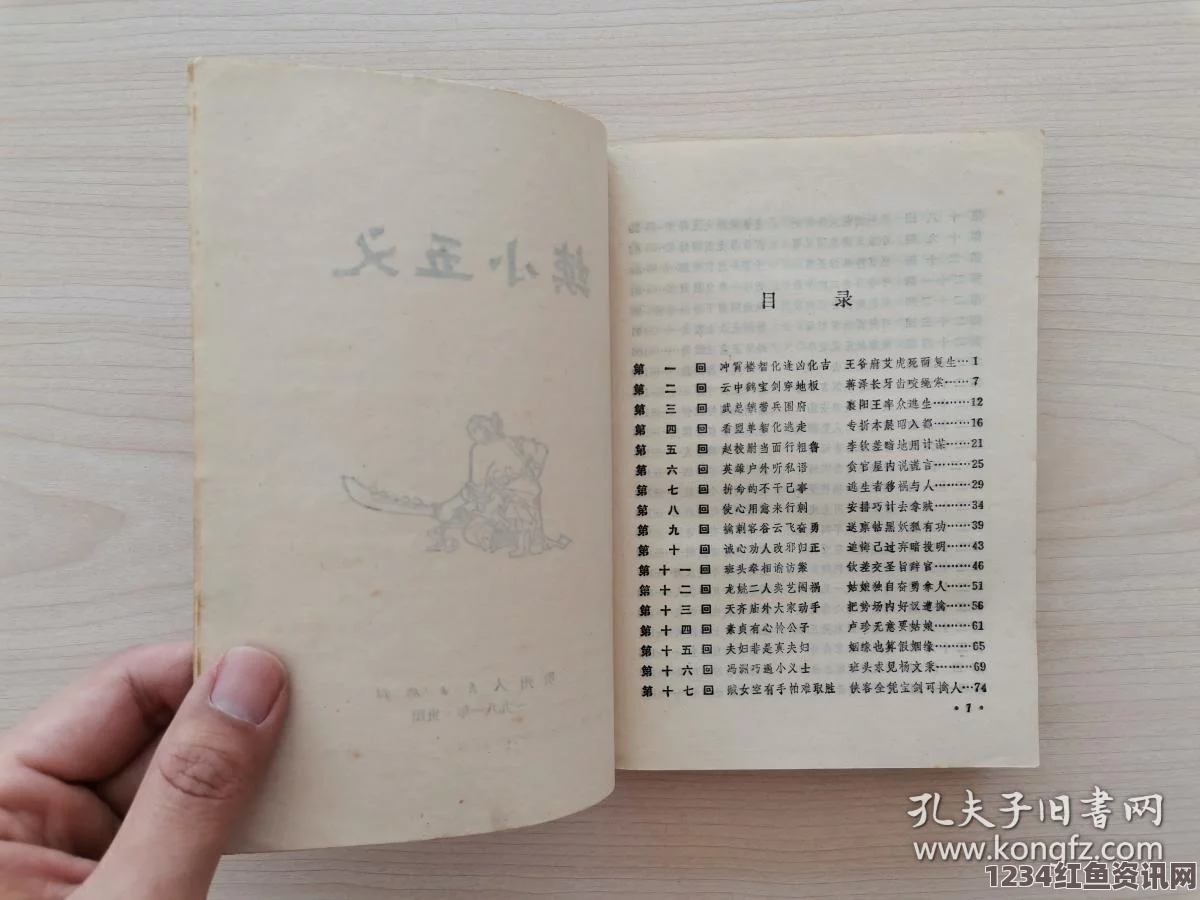 续小五义
贵州人民出版社
一九八一年·贵阳
目 录
第一回 冲霄楼智化逢凶化吉 王爷府艾虎死而复生…1
第二回 云中鹤宝剑穿地板 蒋泽长牙齿咬绳索……7
第三回 武总镇带兵围府 襄阳王率众逃生………12
第四回 看盟单智化逃走 专折本展昭入都………16
第五回 赵校尉当面行粗鲁 李钦差暗地用计谋……21
第六回 英雄户外听私语 贪官屋内说谎言………25
第七回 折命的不干己事 逃生者移祸与人………29
第八回 使心用意来行刺 安排巧计去拿贼………34
第九回 擒刺客谷云飞奋勇 送禀帖黑妖狐有功……39
第十回 诚心劝人改邪归正 追悔己过弃暗投明……43
第十一回 班头奉相谕访案 钦差交圣旨辞官………46
第十二回 龙姚二人卖艺闯祸 姑娘独自奋勇拿人……51
第十三回 天齐庙外大家动手 把势场内好汉遭擒……56
第十四回 素贞有心怜公子 卢珍无意要姑娘………61
第十五回 夫妇非是真夫妇 姻缘也算假姻缘………65
第十六回 冯渊巧遇小义士 班头求见杨文秉………69
第十七回 贼女空有手帕难取胜 侠客全凭宝剑可擒人…74
·1·
孔夫子旧书网
www.kongfz.com
1234红鱼资讯网